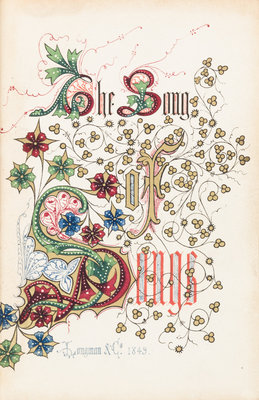 The Song
of
Songs
Longman & Co. 1849.